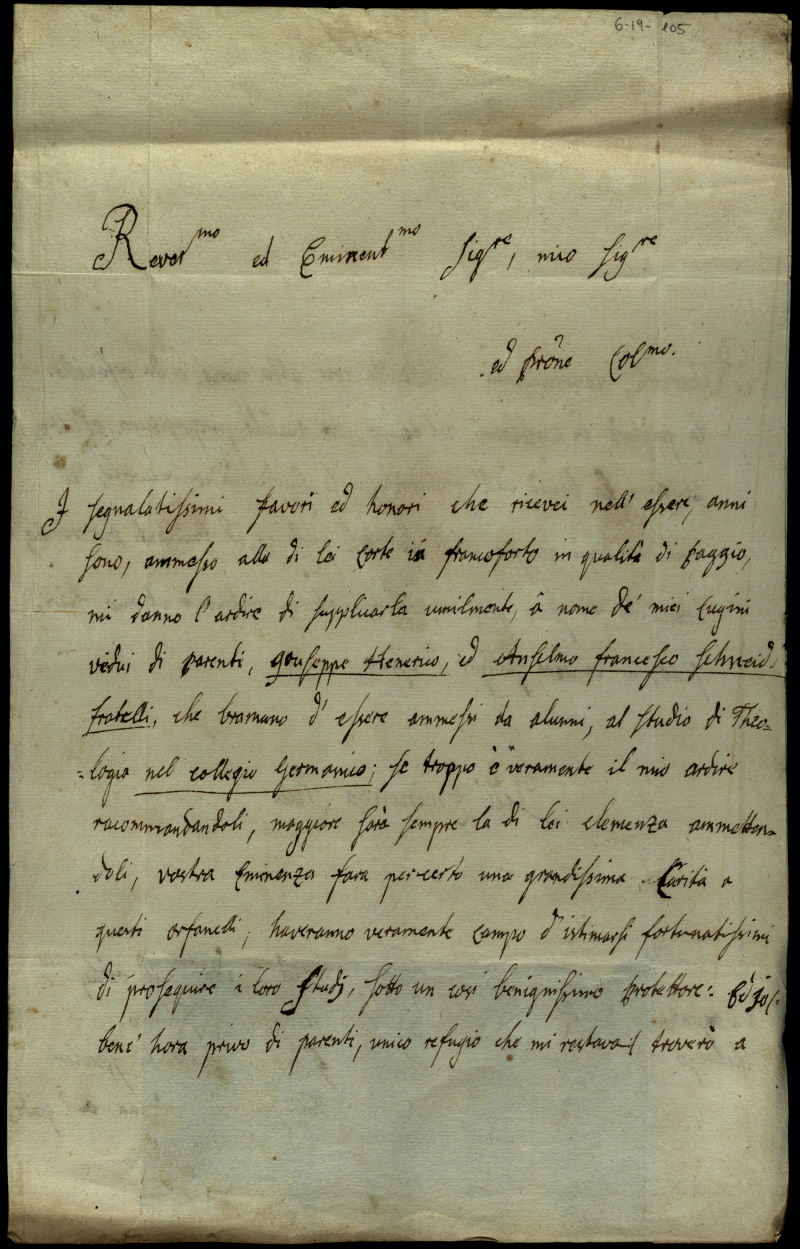 6-19- 105
Rever^mo ed Eminent^mo Sig^re, mio Sig^re
ed Prõne Col^mo.
I segnalatissimi favori ed honori che ricevei nell' essere, anni
sono, ammesso alla di lei corte in francoforto in qualità di paggio,
mi danno l'ardire di supplicarla umilmente, â nome de' miei cugini
vedui di parenti, Giuseppe Henerico, ed Anselmo francesco Schweid,
fratelli, che bramano d' essere ammessi da alunni, al studio di Theo=
=logia nel collegio Germanico; se troppo è veramente il mio ardire
racommandandoli, maggiore sarà sempre la di lei clemenza ammetten=
doli, vostra Eminenza fara per certo una grandissima Carità a
questi orfanelli, haveranno veramente campo d'istimarsi fortunatissimi
di proseguire i loro Studj, sotto un cosi benignissimo protettore: Ed jo (=
bene' hora privo di parenti, unico refugio che mi restava( troverò a